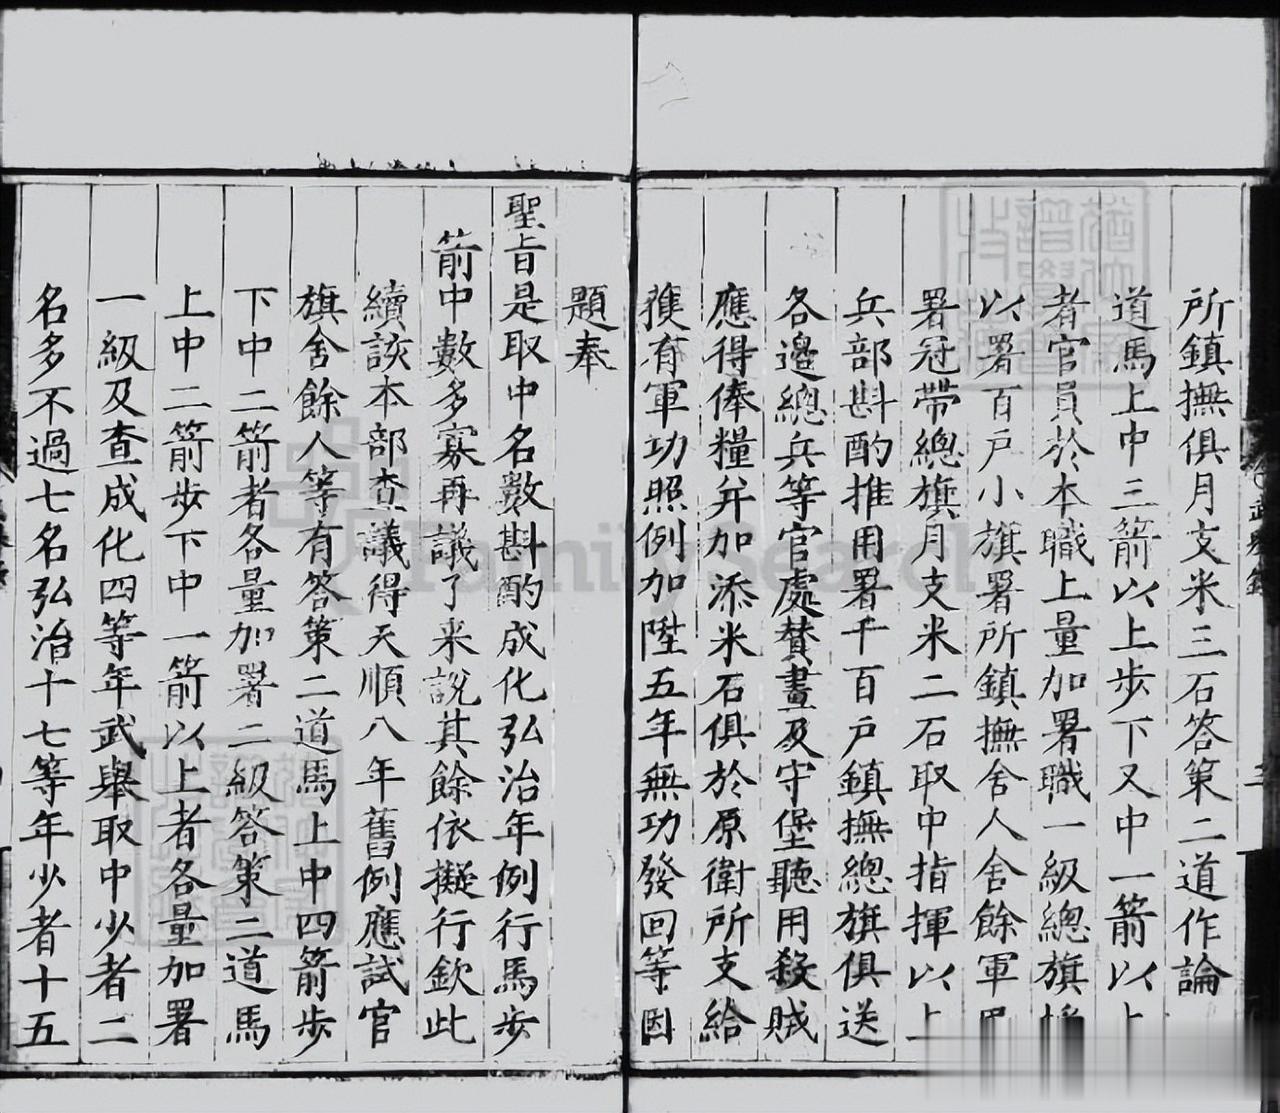 所鎮撫俱月支米三石答策二道作論
道馬上中三箭以上步下又中一箭以上
者官員於本職上量加署職一級總旗
以署百戶小旗署所鎮撫舍人舍餘軍
署冠帶總旗月支米二石取中指揮以上
兵部斟酌推用署千百戶鎮撫總旗俱送
各邊總兵等官處賛畫及守堡聽用殺賊
應得俸糧并加添米石俱於原衛所支給
獲有軍功照例加陞五年無功發回等因
題奉
聖旨是取中名數斟酌成化弘治年例行馬步
箭中數多寡再議了來說其餘依擬行欽此
續該本部查議得天順八年舊例應試官
旗舍餘人等有答策二道馬上中四箭步
下中二箭者各量加署二級答策二道馬
上中二箭步下中一箭以上者各量加署
一級及查成化四等年武舉取中少者二
名多不過七名弘治十七等年少者十五
FamilySearch